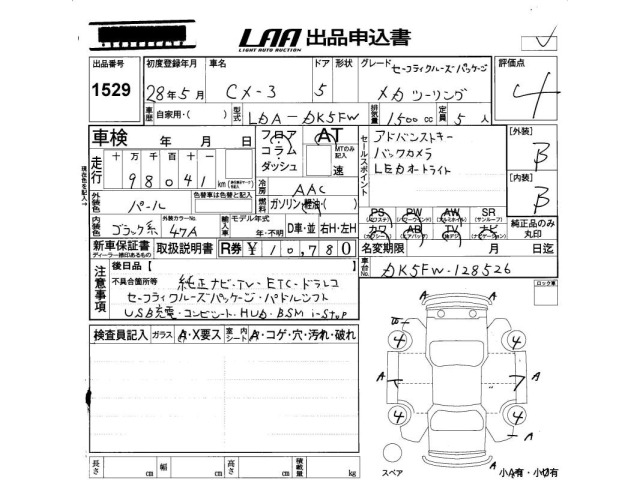 LAA 出品申込書
LIGHT AUTO AUCTION
出品番号 初度登録年月 車名 ドア 形状 グレード 評価点
1529 28年5月 CX-3 5 セーフティクルーズパッケージ XDツーリング 4
車歴 自家用・( ) 型式 LDA-DK5FW 排気量 1500cc 定員 5人
車検 年 月 日
フロア コラム ダッシュ AT MTのみ記入 速
セールスポイント アドバンストキー
バックカメラ
LEDオートライト
[外装] B
[内装] B
走行 十万千百十一
98041 km
現状色を記入
冷房 AAC
外装色 パール 色替車は色替と記入
燃料 ガソリン・軽油・( )
内装色 ブラック系 外装カラーNo. 47A 輸入車 モデル年式 年・不明 D車・並 右H・左H
PS PW AW SR
(パワステ) (パワーウインド) (アルミホイル) (サンルーフ)
カワ AB TV ナビ
(本革) (エアバッグ) (地デジ) (ナビゲーション)
純正品のみ丸印
新車保証書 取扱説明書 R券 ¥10,780 名変期限 月 日迄
ディーラー捺印あるもの
車台No. DK5FW-128526
注意事項 後日品【 】 ロック車
不具合箇所等 純正ナビ・TV・ETC・ドラレコ
セーフティクルーズパッケージ・パドルシフト
USB充電・コンビシート・HUD・BSM i-stop
検査員記入 ガラス A・X要ス 室内シート A・コゲ・穴・汚れ・破れ
A
A
4 4
A A
4 4
A
A
スペア 小A有・小U有
長さ cm 幅 cm 高さ cm 積載量 kg